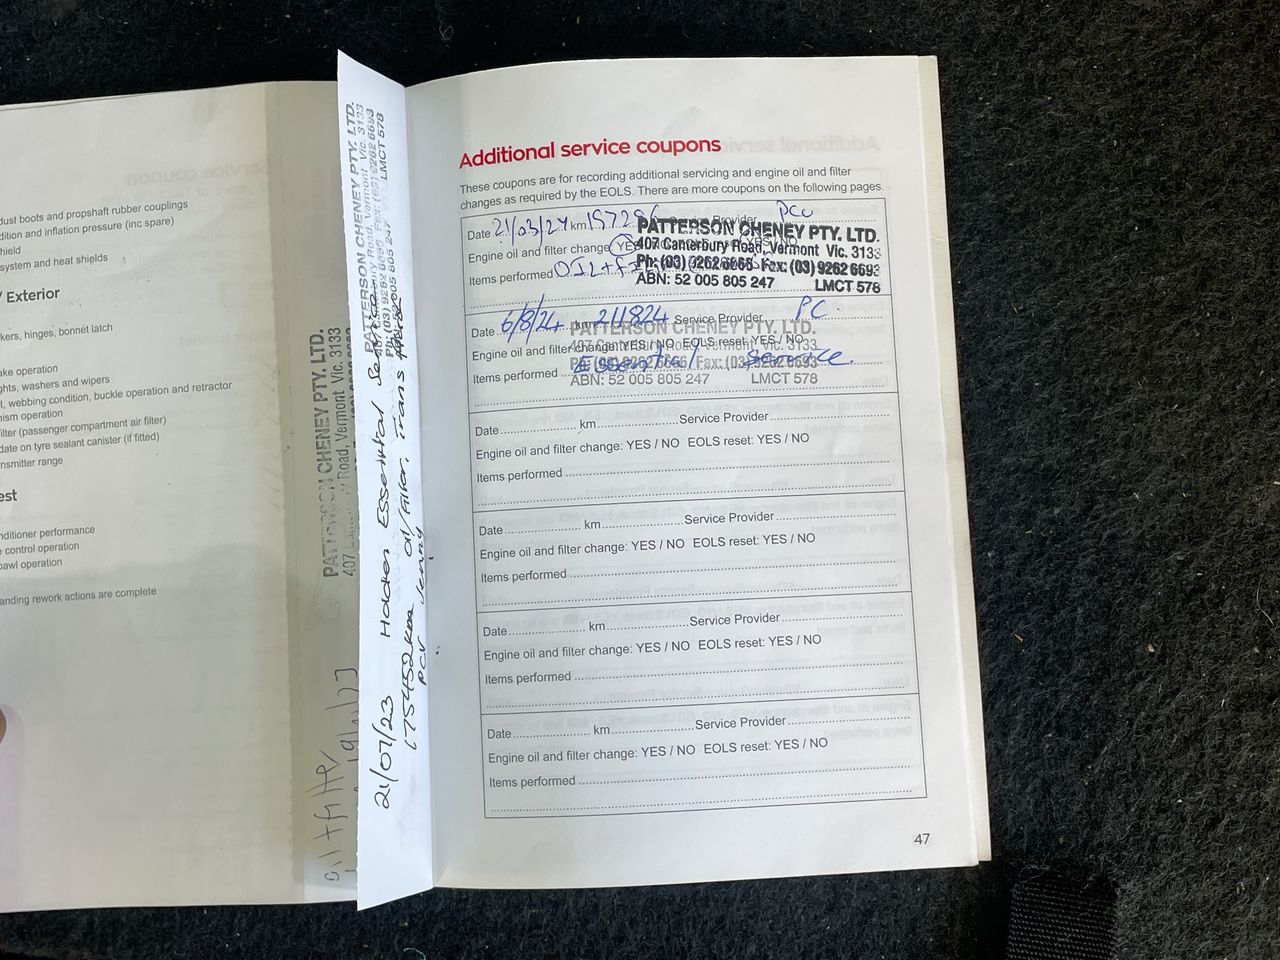 dust boots and propshaft rubber couplings
dition and inflation pressure (inc spare)
hield
system and heat shields
/ Exterior
kers, hinges, bonnet latch
ake operation
ghts, washers and wipers
t, webbing condition, buckle operation and retractor
nism operation
filter (passenger compartment air filter)
date on tyre sealant canister (if fitted)
nsmitter range
est
nditioner performance
e control operation
pawl operation
anding rework actions are complete
PATTERSON CHENEY PTY. LTD.
Road, Vermont Vic. 3133
PATTERSON CHENEY PTY. LTD.
Road, Vermont Vic. 3133
Ph: (03) 9262 6666 Fax: (03) 9262 6693
LMCT 578
21/07/23 Holden Essential Service
175452km oil/Filter, Trans
PCV
Additional service coupons
These coupons are for recording additional servicing and engine oil and filter
changes as required by the EOLS. There are more coupons on the following pages.
Date 21/03/24 km 197296 Service Provider PCV
PATTERSON CHENEY PTY. LTD.
Engine oil and filter change YES
407 Canterbury Road, Vermont Vic. 3133
Items performed OIL +
Ph: (03) 9262 6666 Fax: (03) 9262 6693
ABN: 52 005 805 247 LMCT 578
Date 6/8/24 km 211824 Service Provider PC
PATTERSON CHENEY PTY. LTD.
Engine oil and filter change: YES / NO EOLS reset: YES / NO
Items performed Essential Service
ABN: 52 005 805 247 LMCT 578
Date km Service Provider
Engine oil and filter change: YES / NO EOLS reset: YES / NO
Items performed
Date km Service Provider
Engine oil and filter change: YES / NO EOLS reset: YES / NO
Items performed
Date km Service Provider
Engine oil and filter change: YES / NO EOLS reset: YES / NO
Items performed
Date km Service Provider
Engine oil and filter change: YES / NO EOLS reset: YES / NO
Items performed
47